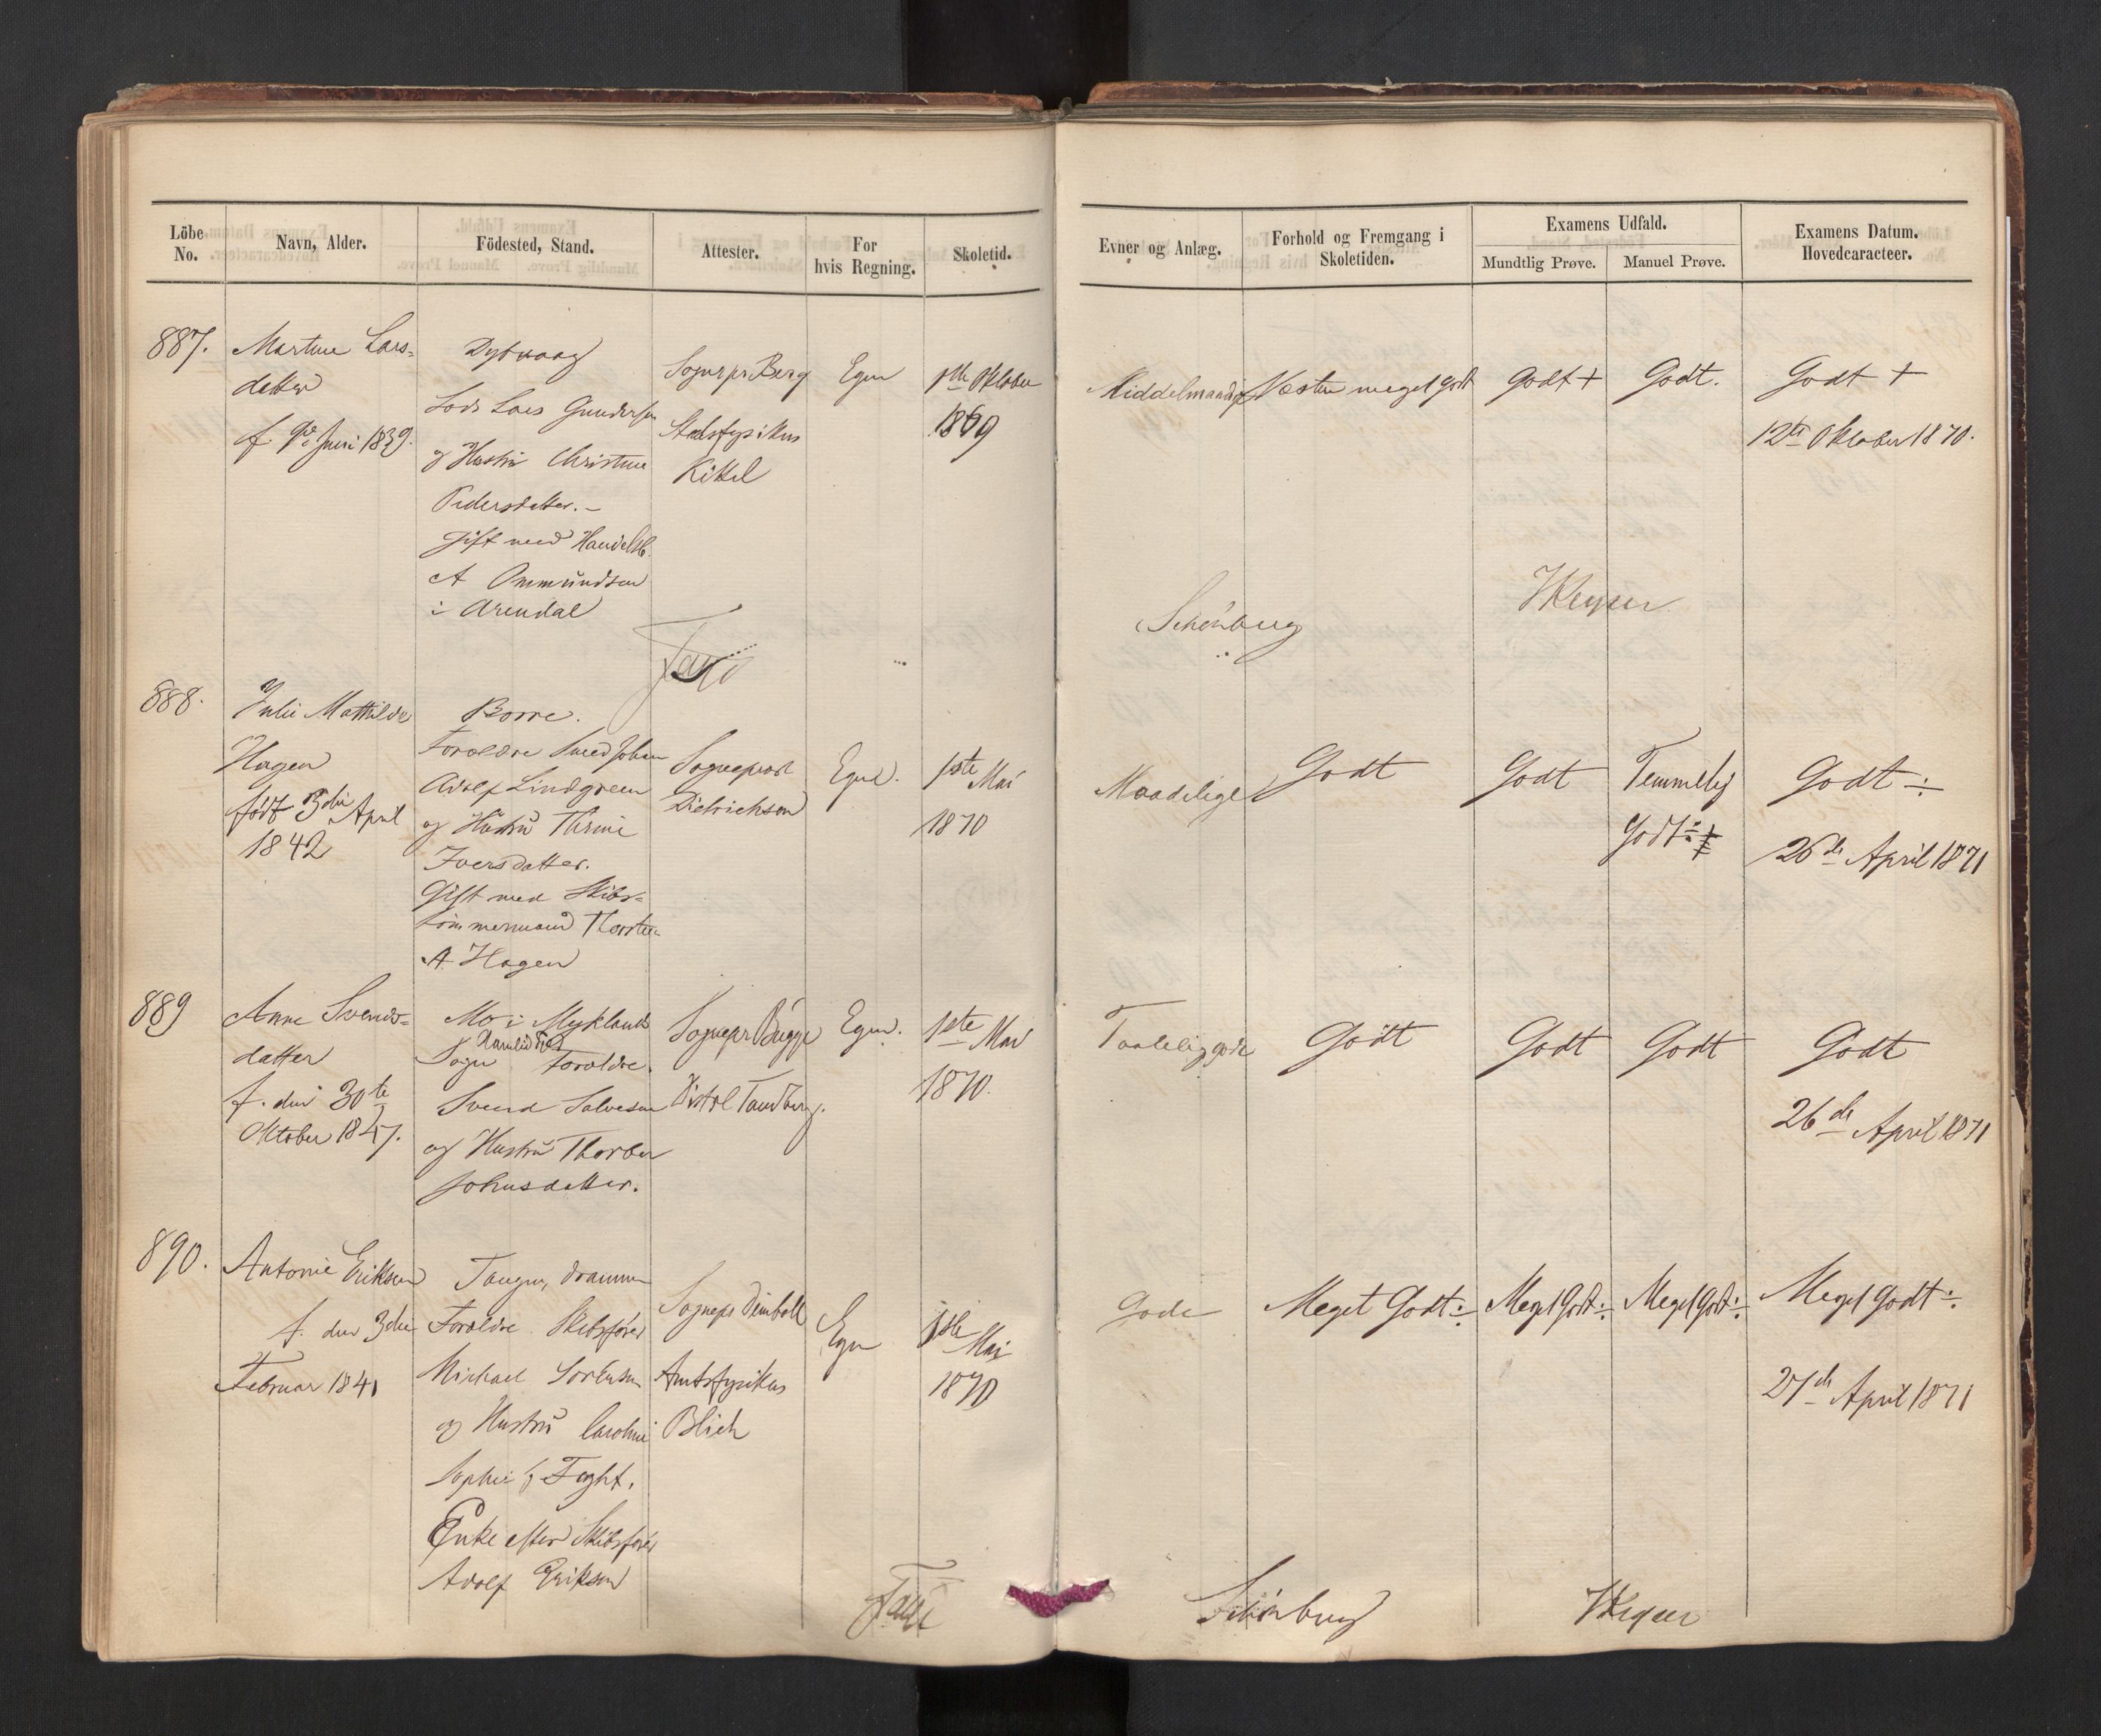 Löbe No.
Navn, Alder.
Födested, Stand.
Attester.
For hvis Regning.
Skoletid.
Evner og Anlæg.
Forhold og Fremgang i Skoletiden.
Examens Udfald.
Mundtlig Prøve.
Manuel Prøve.
Examens Datum. Hovedcaracteer.
887.
Martine Lars-
datter
f. 9de Juni 1839.
Dybvaag
Lods Lars Gundersen
og Hustru Christine
Pedersdatter. –
gift med Handelsb.
A Ommundsen
i Arendal
Sognepr Berg
Stadsfysikus
Kittel
Egen
1ste Oktober
1869
Middelmaadige
Næsten meget godt
Godt +
Godt.
Godt +
12te Oktober 1870.
Schönberg
888.
Julie Mathilde
Hagen
født 3die April
1842
Borre.
Forældre Smed Johan
Adolf Lindgreen
og Hustru
Iversdatter.
Gift med Skibs-
tömmermand Thorsten
A Hagen
Sogneprest
Dietrichson
Egen.
1ste Mai
1870
Maadelige
Godt
Godt
Temmelig
Godt
Godt ÷
26de April 1871
889
Anne Svends-
datter
f. den 30te
Oktober 1847.
Mo i Myklands
Sogn Forældre.
Svend Salvesen
og Hustru Thorber
Johnsdatter.
Sognepr Bugge
Distrl Tandberg.
Egen.
1ste Mai
1870.
Taalelig gode
Godt
Godt
Godt
Godt
26de April 1871
890.
Antonie Eriksen
f. den 3die
Februar 1841
Tangen, Drammen
Forældre Skibsfører
Michael Sørensen
og Hustru Caroline
Sophie f Foght.
Enke efter Skibsfører
Adolf Eriksen
Sognepr
Amtsfysikus
Blich
Egen
1ste Mai
1870
Gode
Meget Godt ÷
Meget Godt ÷
Meget Godt ÷
Meget Godt ÷
27de April 1871
Schönberg